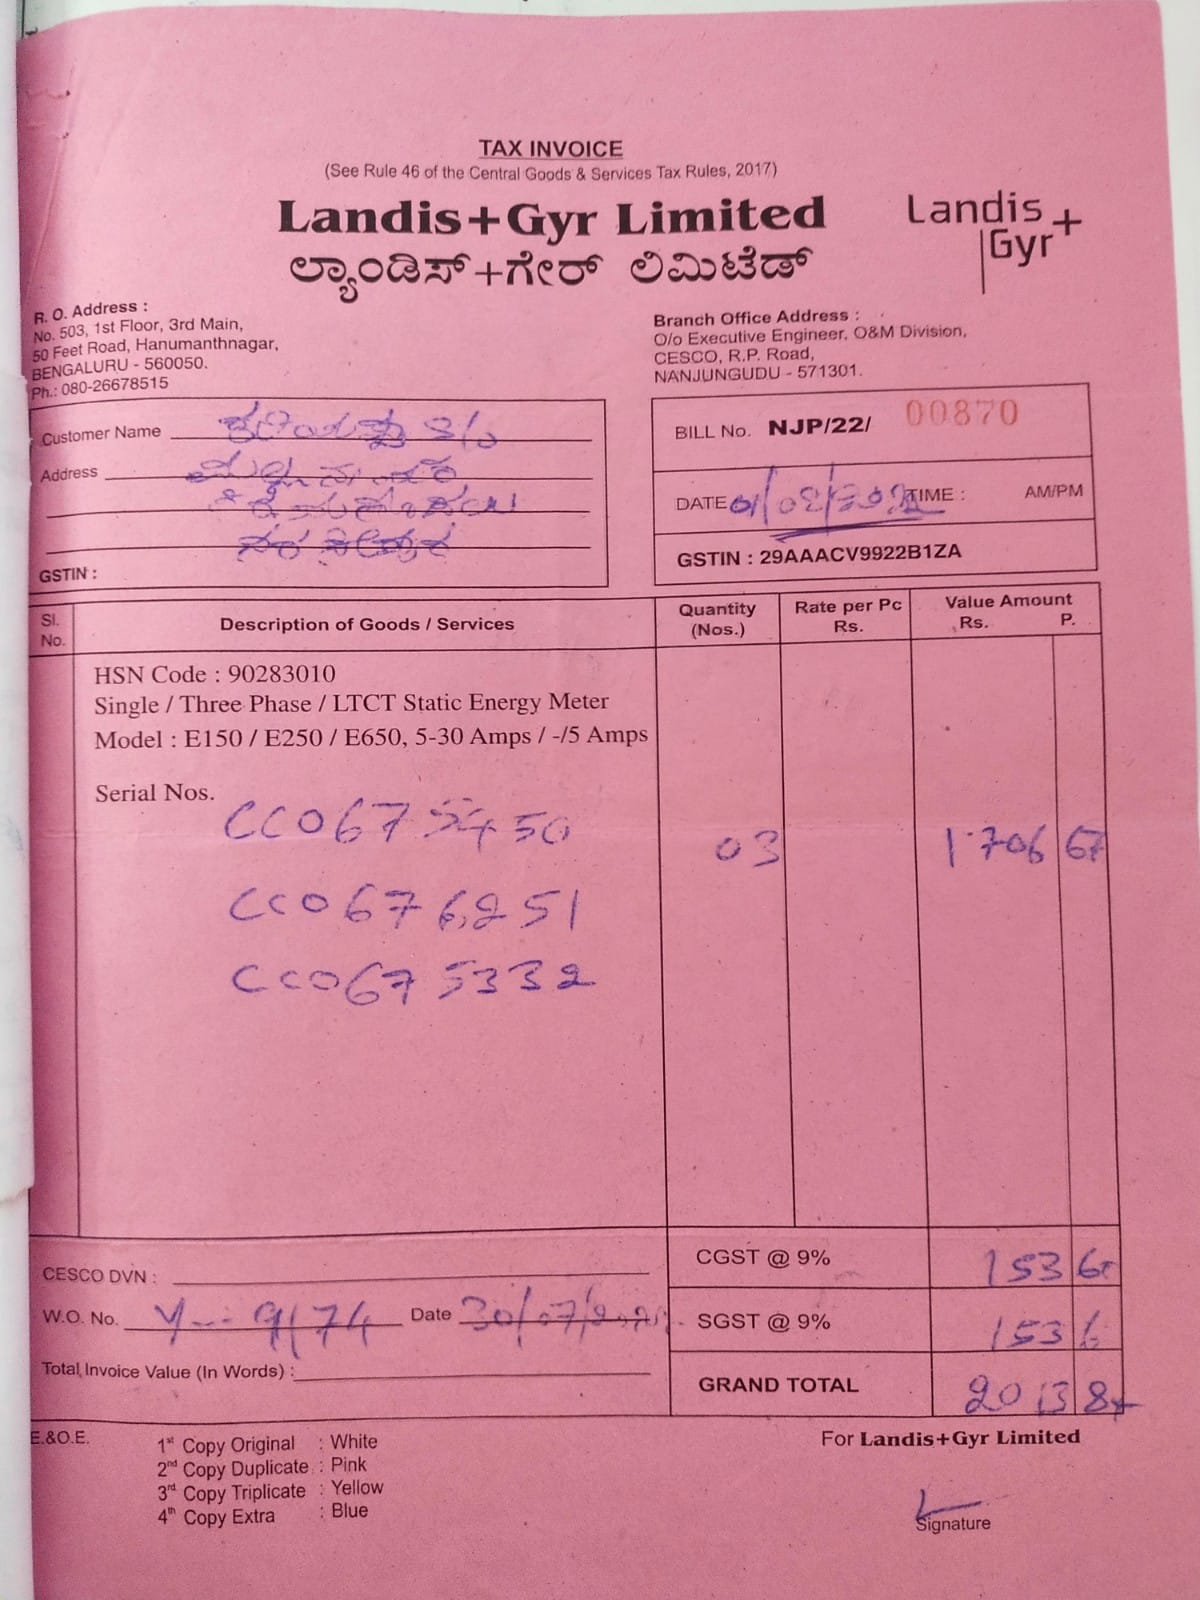 TAX INVOICE
(See Rule 46 of the Central Goods & Services Tax Rules, 2017)
Landis+Gyr Limited
ಲ್ಯಾಂಡಿಸ್+ಗೇರ್ ಲಿಮಿಟೆಡ್
Landis+
Gyr
R. O. Address :
No. 503, 1st Floor, 3rd Main,
50 Feet Road, Hanumanthnagar,
BENGALURU - 560050.
Ph.: 080-26678515
Branch Office Address :
O/o Executive Engineer, O&M Division,
CESCO, R.P. Road,
NANJUNGUDU - 571301.
Customer Name
Address
GSTIN :
BILL No. NJP/22/ 00870
DATE TIME : AM/PM
GSTIN : 29AAACV9922B1ZA
Sl. No. Description of Goods / Services Quantity (Nos.) Rate per Pc Rs. Value Amount Rs. P.
HSN Code : 90283010
Single / Three Phase / LTCT Static Energy Meter
Model : E150 / E250 / E650, 5-30 Amps / -/5 Amps
Serial Nos.
CC0675450 03 1706 67
CC0676251
CC0675332
CESCO DVN :
CGST @ 9% 153
W.O. No. Date
SGST @ 9% 153
Total Invoice Value (In Words) :
GRAND TOTAL 2013
E.&O.E.
1st Copy Original : White
2nd Copy Duplicate : Pink
3rd Copy Triplicate : Yellow
4th Copy Extra : Blue
For Landis+Gyr Limited
Signature